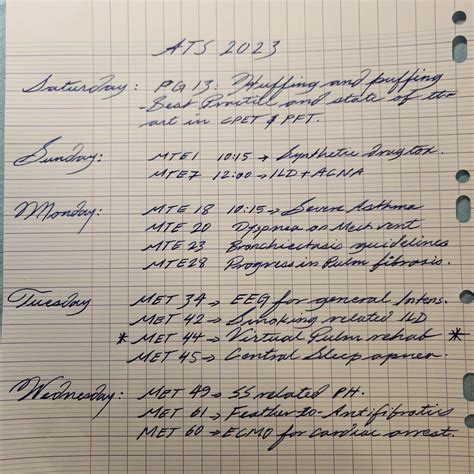 ATS 2023
Saturday: PG 13. Huffing and puffing
- Best Practice and state of the
art in CPET & PFT.
Sunday: MTE1 10:15 → Synthetic drug tox.
MTE7 12:00 → ILD + ACNA
Monday: MTE 18 10:15 → Severe Asthma
MTE 20 Dyspnea on Mech vent
MTE 23 Bronchiectasis guidelines
MTE28 Progress in Pulm fibrosis.
Tuesday MET 34 → EEG for general Intens.
MET 42 → Smoking related ILD
* MET 44 → Virtual Pulm rehab *
MET 45 → Central Sleep apnea.
Wednesday: MET 49 → SS related PH.
MET 61 → Feather to Antifibrotics
MET 60 → ECMO for cardiac arrest.